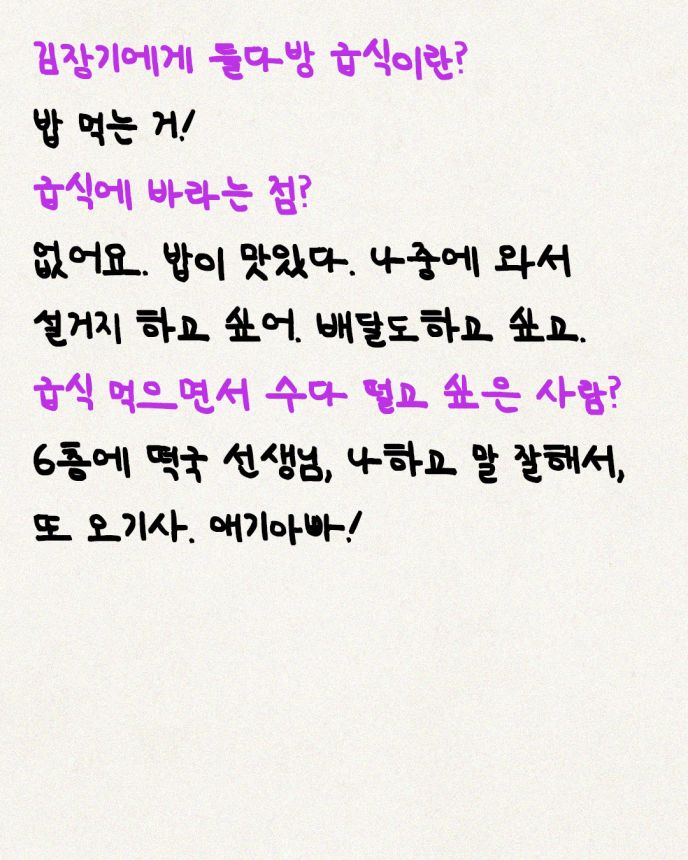 김장기에게 들다방 급식이란?
밥 먹는 거!
급식에 바라는 점?
없어요. 밥이 맛있다. 나중에 와서
설거지 하고 싶어. 배달도하고 싶고.
급식 먹으면서 수다 떨고 싶은 사람?
6층에 떡국 선생님, 나하고 말 잘해서,
또 오기사. 애기아빠!